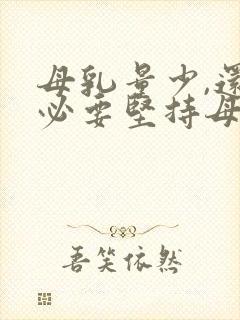 母乳量少,還
必要堅持母
吾笑依然